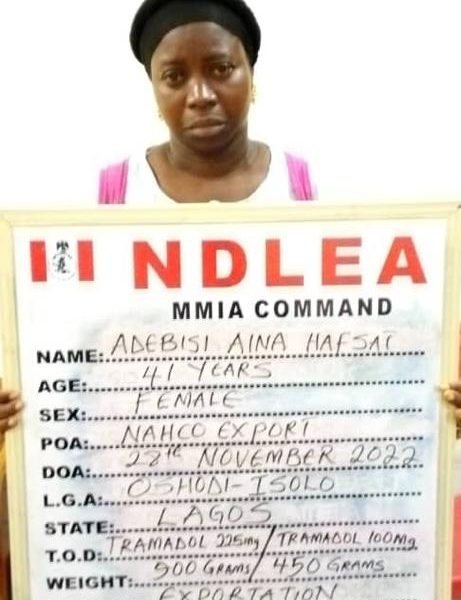 NDLEA
MMIA COMMAND
NAME: ADEBISI AINA HAFSAT
AGE: 41 YEARS
SEX: FEMALE
POA: NAHCO EXPORT
DOA: 28TH NOVEMBER 2022
L.G.A: OSHODI-ISOLO
STATE: LAGOS
T.O.D: TRAMADOL 225mg/TRAMADOL 100mg
WEIGHT: 900 GRAMS/450 GRAMS
EXPORTATION